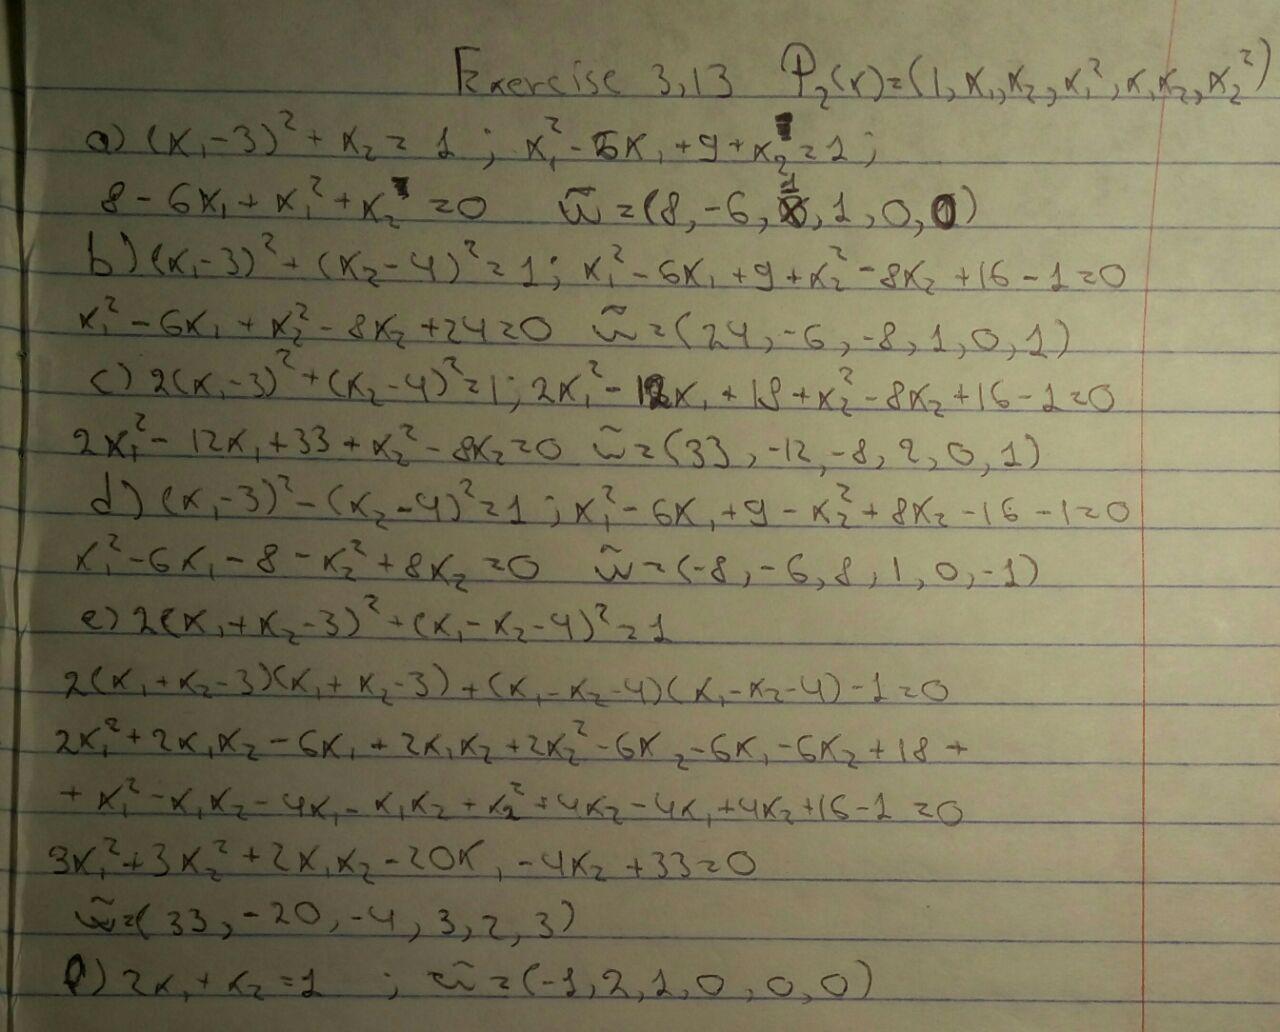 Exercise 3,13 Φ₂(x)=(1, x₁, x₂, x₁², x₁x₂, x₂²)
a) (x₁-3)² + x₂ = 1 ; x₁² - 6x₁ + 9 + x₂ = 1 ;
8 - 6x₁ + x₁² + x₂ = 0 w̃ = (8, -6, 1, 1, 0, 0)
b) (x₁-3)² + (x₂-4)² = 1; x₁² - 6x₁ + 9 + x₂² - 8x₂ + 16 - 1 = 0
x₁² - 6x₁ + x₂² - 8x₂ + 24 = 0 w̃ = (24, -6, -8, 1, 0, 1)
c) 2(x₁-3)² + (x₂-4)² = 1; 2x₁² - 12x₁ + 18 + x₂² - 8x₂ + 16 - 1 = 0
2x₁² - 12x₁ + 33 + x₂² - 8x₂ = 0 w̃ = (33, -12, -8, 2, 0, 1)
d) (x₁-3)² - (x₂-4)² = 1 ; x₁² - 6x₁ + 9 - x₂² + 8x₂ - 16 - 1 = 0
x₁² - 6x₁ - 8 - x₂² + 8x₂ = 0 w̃ = (-8, -6, 8, 1, 0, -1)
e) 2(x₁ + x₂ - 3)² + (x₁ - x₂ - 4)² = 1
2(x₁ + x₂ - 3)(x₁ + x₂ - 3) + (x₁ - x₂ - 4)(x₁ - x₂ - 4) - 1 = 0
2x₁² + 2x₁x₂ - 6x₁ + 2x₁x₂ + 2x₂² - 6x₂ - 6x₁ - 6x₂ + 18 +
+ x₁² - x₁x₂ - 4x₁ - x₁x₂ + x₂² + 4x₂ - 4x₁ + 4x₂ + 16 - 1 = 0
3x₁² + 3x₂² + 2x₁x₂ - 20x₁ - 4x₂ + 33 = 0
w̃ = (33, -20, -4, 3, 2, 3)
f) 2x₁ + x₂ = 1 ; w̃ = (-1, 2, 1, 0, 0, 0)